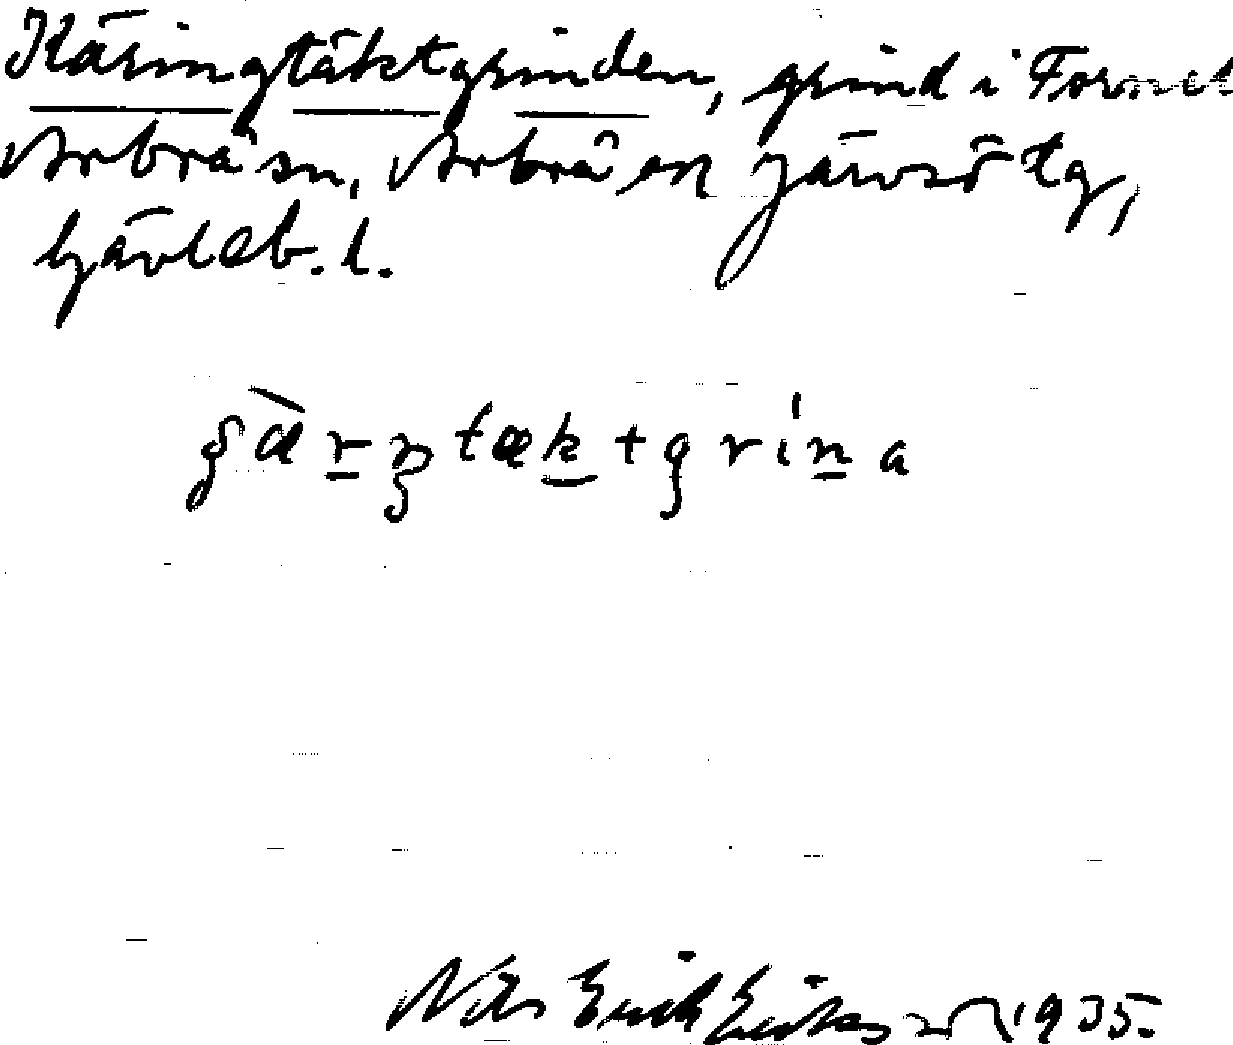 Käringtäktgrinden, grind i Fornet
Arbrå sn, Arbrå en Järvsö tg,
Gävleb. l.
tæktgrina
Nils Erich Eriksson 1935.